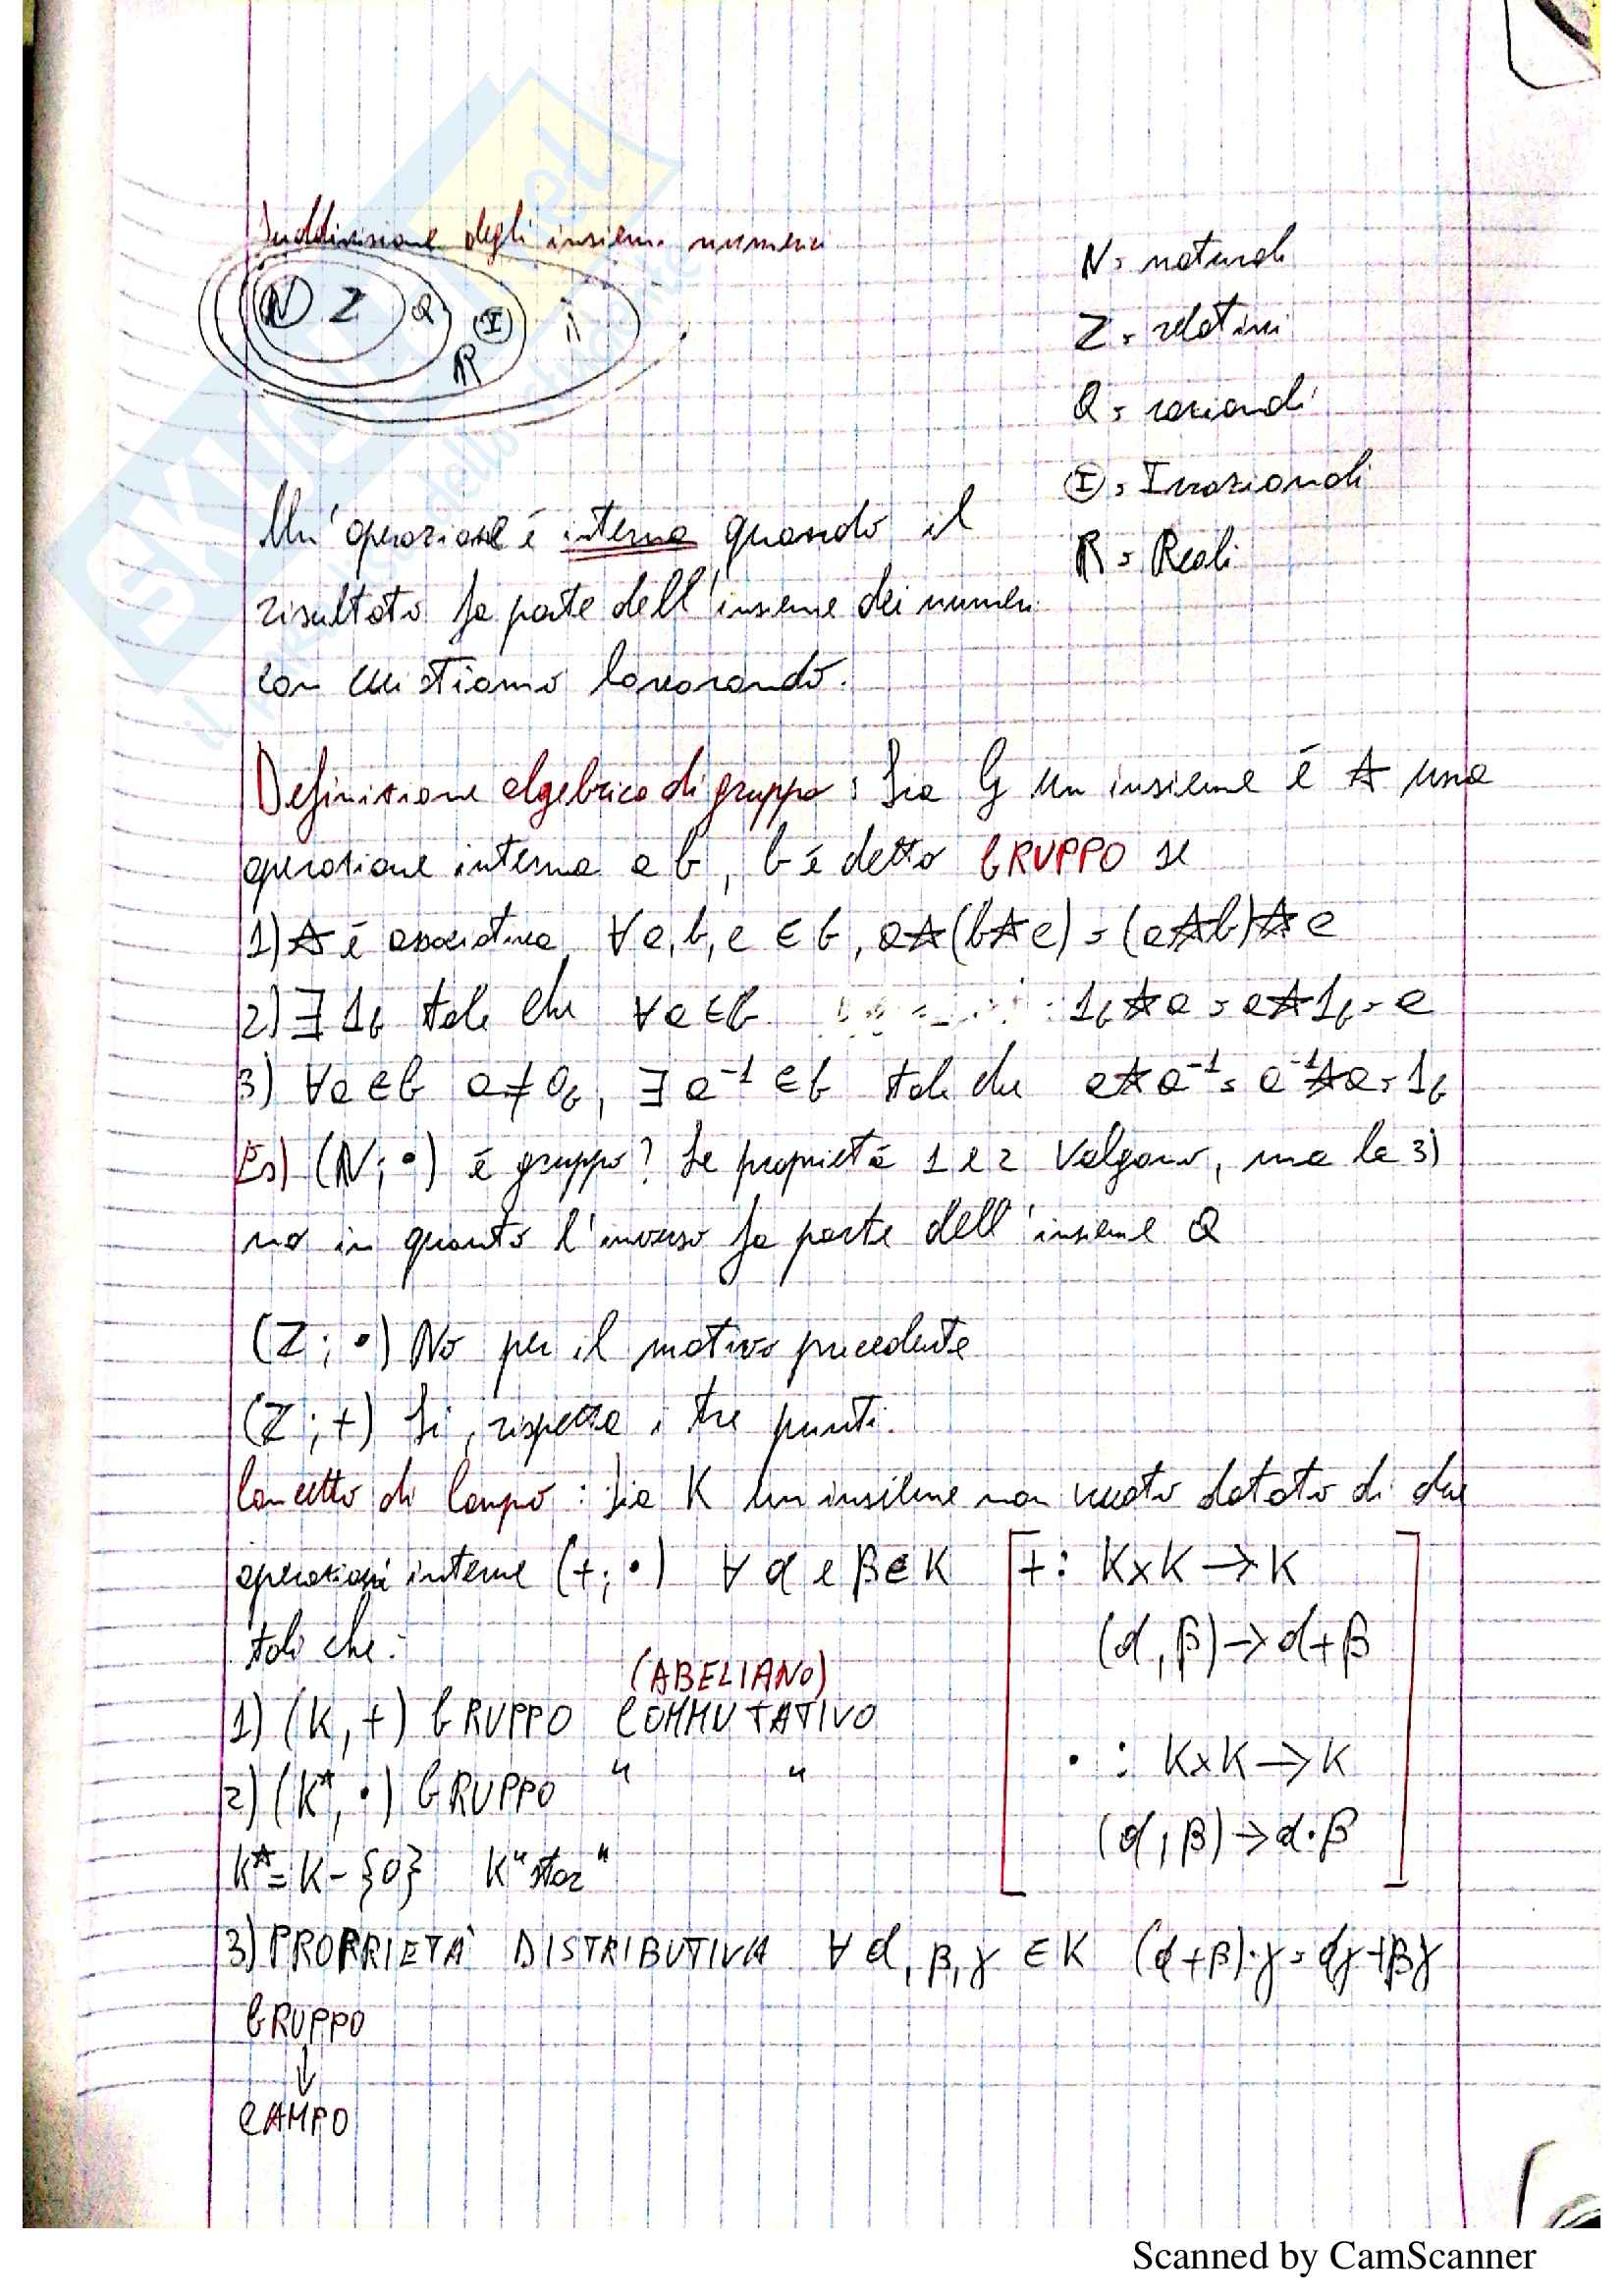 Suddivisione degli insiemi numerici
N Z Q I R i
N = naturali
Z = relativi
Q = razionali
I = Irrazionali
R = Reali
Un'operazione é interna quando il
risultato fa parte dell'insieme dei numeri
con cui stiamo lavorando.
Definizione algebrica di gruppo: Sia G un insieme é ☆ una
operazione interna a G, G é detto GRUPPO se
1) ☆ é associativa ∀ a, b, c ∈ G, a☆(b☆c) = (a☆b)☆c
2) ∃ 1G tale che ∀ a ∈ G : 1G☆a = a☆1G = a
3) ∀ a ∈ G a ≠ 0G, ∃ a⁻¹ ∈ G tale che a☆a⁻¹ = a⁻¹☆a = 1G
Es) (N; •) é gruppo? Le proprietà 1 e 2 Valgono, ma la 3)
no in quanto l'inverso fa parte dell'insieme Q
(Z; •) No per il motivo precedente
(Z; +) Si, rispetta i tre punti.
Concetto di Campo: Sia K un insieme non vuoto dotato di due
operazioni interne (+; •) ∀ α e β ∈ K [+: K×K → K
tali che: (α, β) → α+β
(ABELIANO)
1) (K, +) GRUPPO COMMUTATIVO
• : K×K → K
2) (K*, •) GRUPPO " "
(α, β) → α•β]
K* = K - {0} K "star"
3) PROPRIETÀ DISTRIBUTIVA ∀ α, β, γ ∈ K (α+β)•γ = αγ+βγ
GRUPPO
↓
CAMPO
Scanned by CamScanner